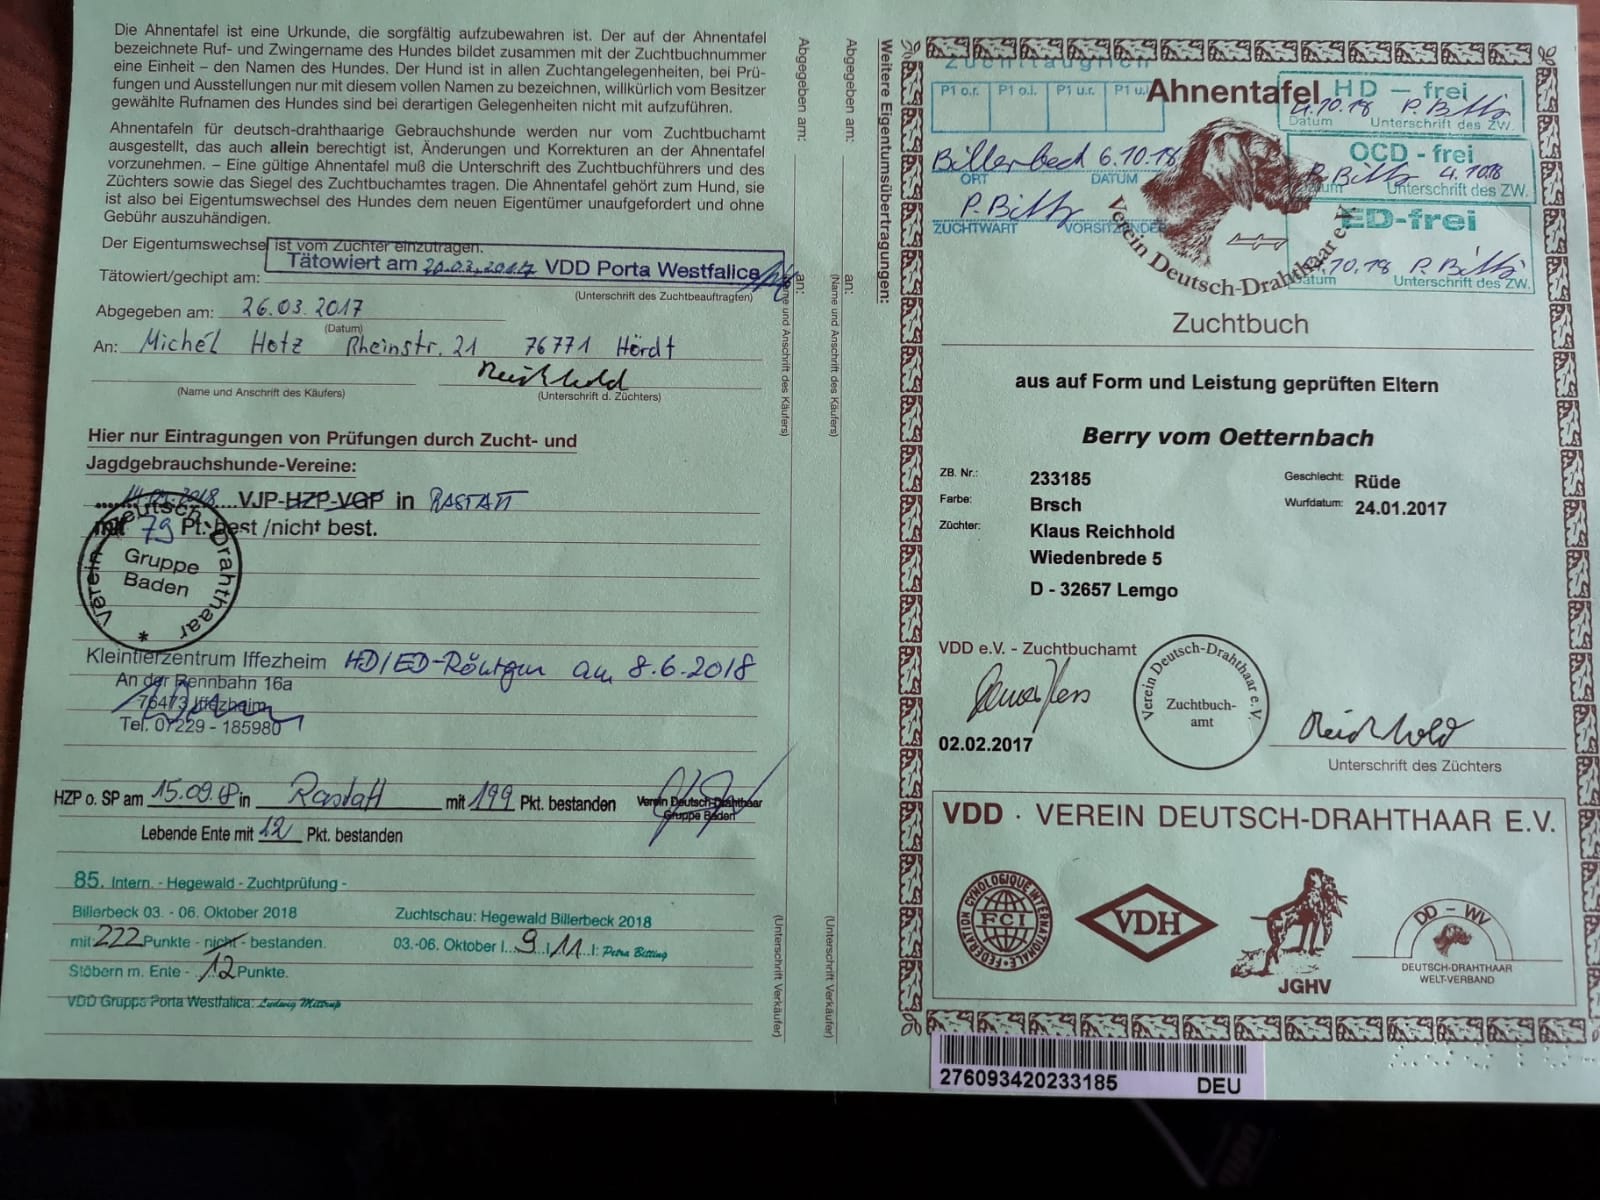 Die Ahnentafel ist eine Urkunde, die sorgfältig aufzubewahren ist. Der auf der Ahnentafel
bezeichnete Ruf- und Zwingername des Hundes bildet zusammen mit der Zuchtbuchnummer
eine Einheit – den Namen des Hundes. Der Hund ist in allen Zuchtangelegenheiten, bei Prü-
fungen und Ausstellungen nur mit diesem vollen Namen zu bezeichnen, willkürlich vom Besitzer
gewählte Rufnamen des Hundes sind bei derartigen Gelegenheiten nicht mit aufzuführen.
Ahnentafeln für deutsch-drahthaarige Gebrauchshunde werden nur vom Zuchtbuchamt
ausgestellt, das auch allein berechtigt ist, Änderungen und Korrekturen an der Ahnentafel
vorzunehmen. – Eine gültige Ahnentafel muß die Unterschrift des Zuchtbuchführers und des
Züchters sowie das Siegel des Zuchtbuchamtes tragen. Die Ahnentafel gehört zum Hund, sie
ist also bei Eigentumswechsel des Hundes dem neuen Eigentümer unaufgefordert und ohne
Gebühr auszuhändigen.
Der Eigentumswechsel ist vom Züchter einzutragen.
Tätowiert am 20.03.2017 VDD Porta Westfalica
Tätowiert/gechipt am:
(Unterschrift des Zuchtbeauftragten)
Abgegeben am: 26.03.2017
(Datum)
An: Michél Hotz Rheinstr. 21 76771 Hördt
Reichhold
(Name und Anschrift des Käufers) (Unterschrift d. Züchters)
Hier nur Eintragungen von Prüfungen durch Zucht- und
Jagdgebrauchshunde-Vereine:
VJP-HZP-VGP in RASTATT
mit 79 Pt. best /nicht best.
Verein Deutsch-Drahthaar *
Gruppe
Baden
Kleintierzentrum Iffezheim HD/ED-Röntgen am 8.6.2018
An der Rennbahn 16a
76473 Iffezheim
Tel. 07229 - 185980
HZP o. SP am 15.09.18 in Rastatt mit 199 Pkt. bestanden
Verein Deutsch-Drahthaar
Gruppe Baden
Lebende Ente mit 12 Pkt. bestanden
85. Intern. - Hegewald - Zuchtprüfung -
Billerbeck 03. - 06. Oktober 2018
mit 222 Punkte - nicht - bestanden.
Stöbern m. Ente - 12 Punkte.
VDD Gruppe Porta Westfalica: Ludwig Mittrup
Zuchtschau: Hegewald Billerbeck 2018
03.-06. Oktober I...9...I 11 ..I: Petra Bitting
Abgegeben am:
an:
(Name und Anschrift des Käufers)
(Unterschrift Verkäufer)
Abgegeben am:
an:
(Name und Anschrift des Käufers)
(Unterschrift Verkäufer)
Weitere Eigentumsübertragungen:
Zuchttauglich
P1 o.r. P1 o.l. P1 u.r. P1 u.l.
Billerbeck 6.10.18
ORT DATUM
P. Bitting
ZUCHTWART VORSITZENDER
Ahnentafel
HD – frei
4.10.18 P. Bitting
Datum Unterschrift des ZW.
OCD - frei
P. Bitting 4.10.18
Datum Unterschrift des ZW.
ED-frei
4.10.18 P. Bitting
Datum Unterschrift des ZW.
Verein Deutsch-Drahthaar e.V.
Zuchtbuch
aus auf Form und Leistung geprüften Eltern
Berry vom Oetternbach
ZB. Nr.: 233185
Geschlecht: Rüde
Farbe: Brsch
Wurfdatum: 24.01.2017
Züchter: Klaus Reichhold
Wiedenbrede 5
D - 32657 Lemgo
VDD e.V. - Zuchtbuchamt
02.02.2017
Verein Deutsch-Drahthaar e.V.
Zuchtbuch-
amt
Reichhold
Unterschrift des Züchters
VDD · VEREIN DEUTSCH-DRAHTHAAR E.V.
FEDERATION CYNOLOGIQUE INTERNATIONALE
FCI
VDH
JGHV
DD - WV
DEUTSCH-DRAHTHAAR
WELT-VERBAND
276093420233185 DEU